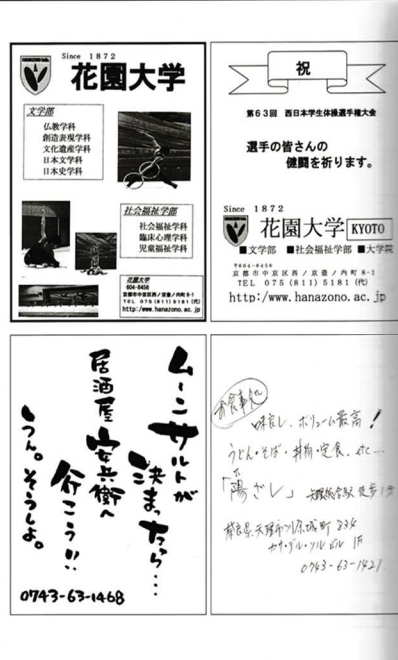 Since 1872
花園大学
文学部
仏教学科
創造表現学科
文化遺産学科
日本文学科
日本史学科
社会福祉学部
社会福祉学科
臨床心理学科
児童福祉学科
花園大学
604-8456
京都市中京区西ノ京壺ノ内町8-1
TEL 075 (811) 5181 (代)
http://www.hanazono.ac.jp
祝
第63回 西日本学生体操選手権大会
選手の皆さんの
健闘を祈ります。
Since 1872
花園大学 KYOTO
■文学部 ■社会福祉学部 ■大学院
〒604-8456
京都市中京区西ノ京壺ノ内町8-1
TEL 075 (811) 5181 (代)
http://www.hanazono.ac.jp
ムーンサルトが
決まったら…
居酒屋 安兵衛へ
行こう!!
うん。そうしよ。
0743-63-1468
お食事処
味良し、ボリューム最高!
うどん・そば・丼物・定食、etc…
「陽ざし」 天理総合駅 徒歩
奈良県天理市川原城町 834
カサ・デル・ソル ビル 1F
0743-63-1421